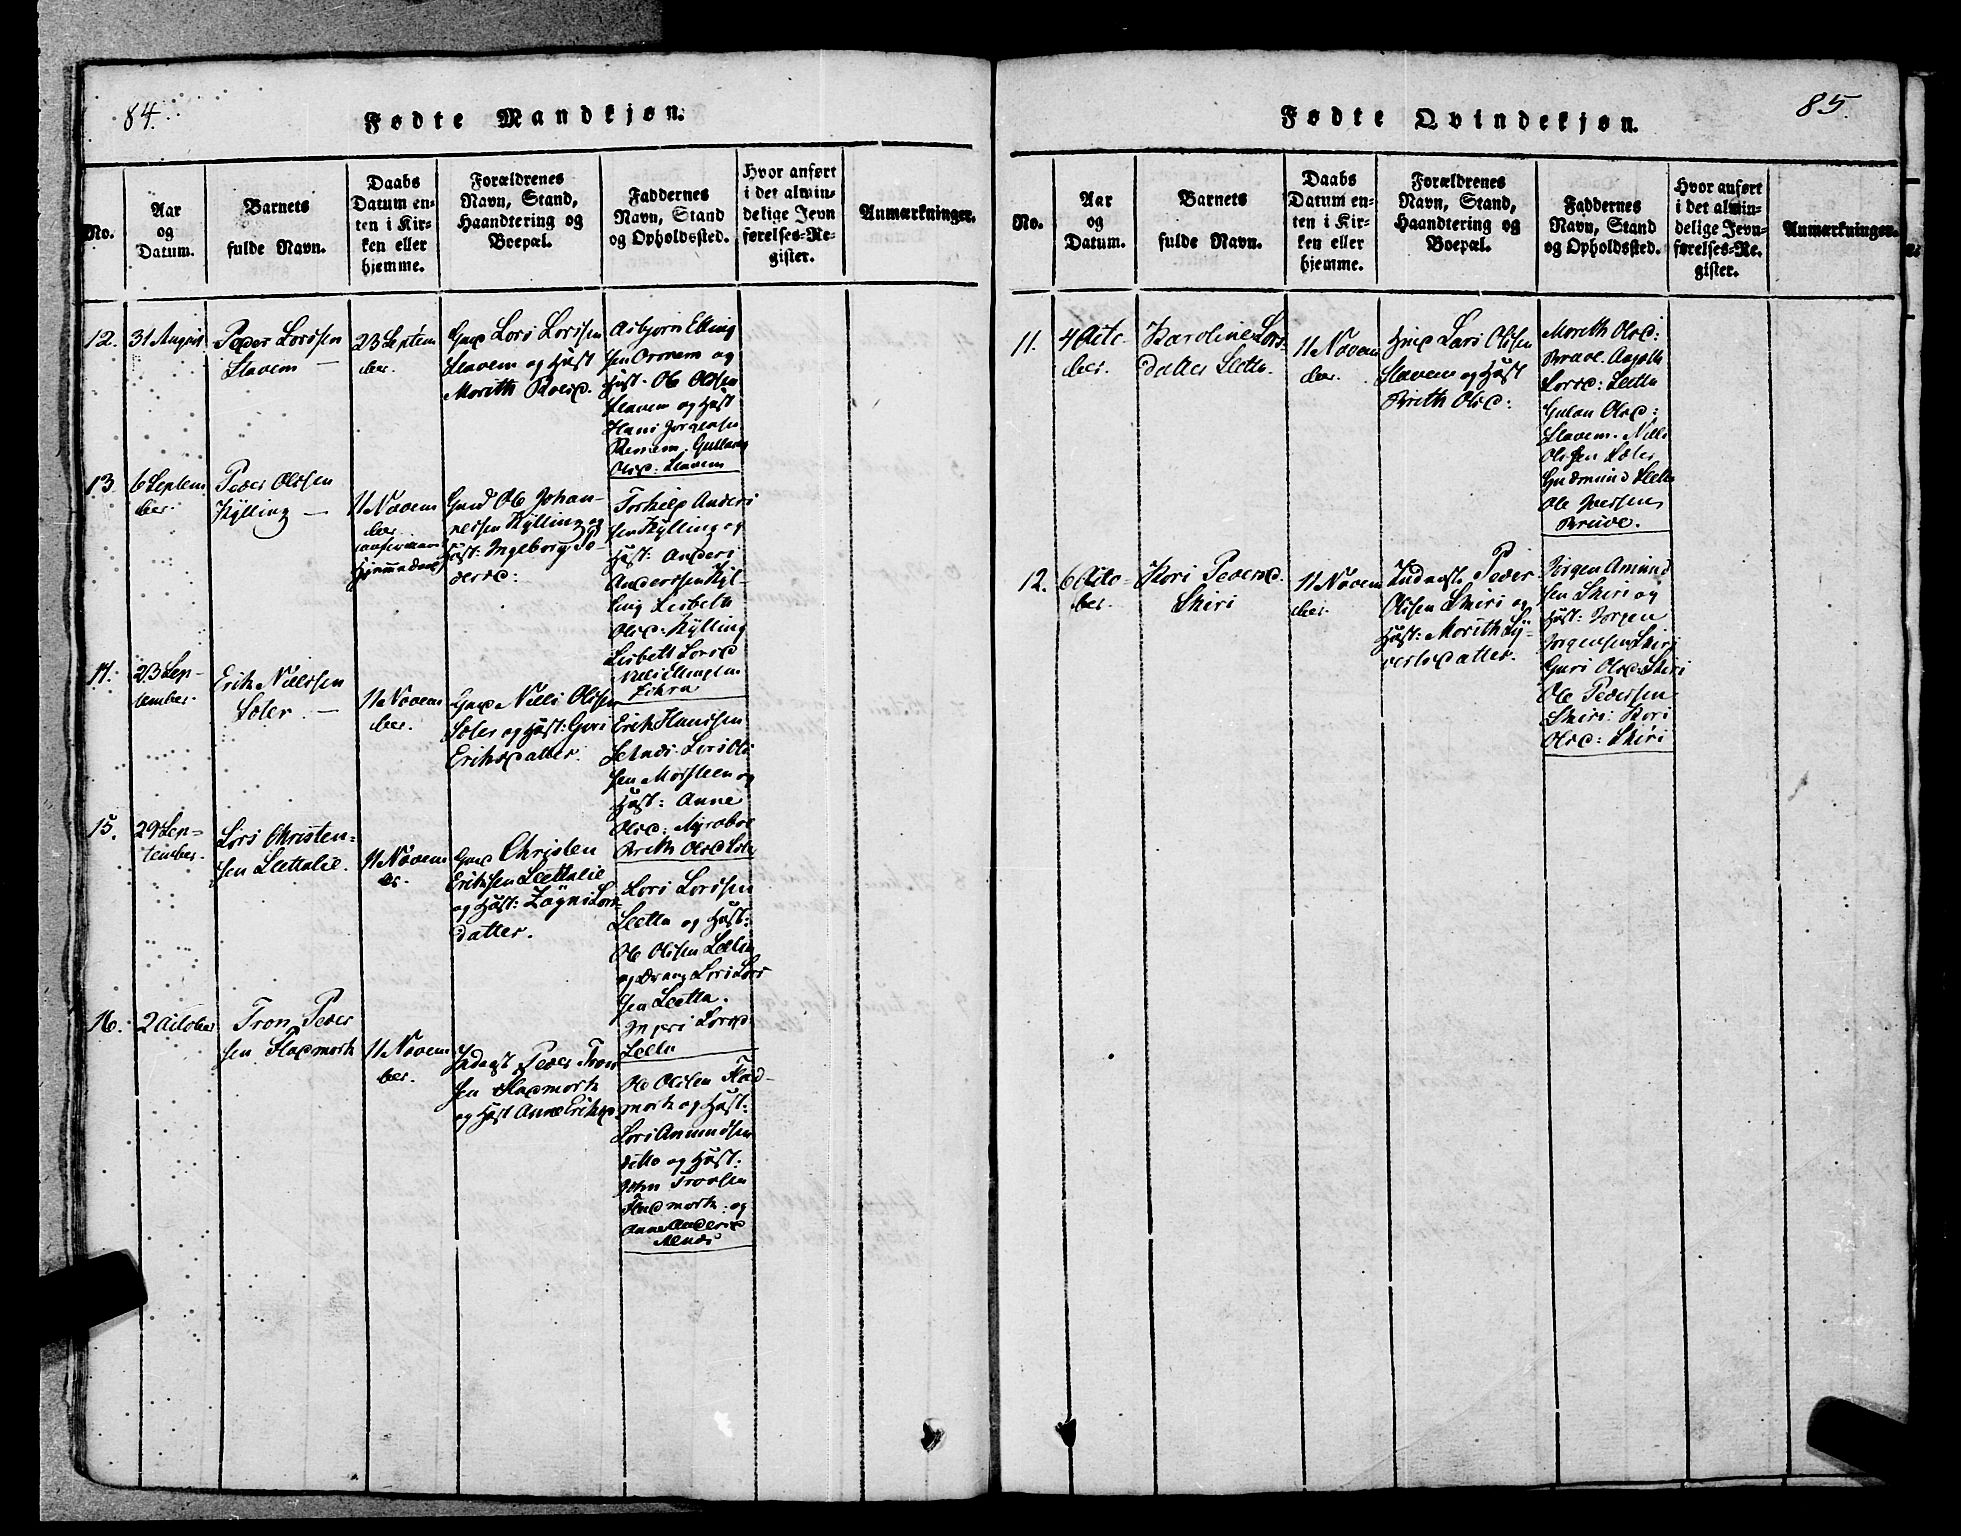 84.
Fødte Mandkjøn.
No.
Aar
og
Datum.
Barnets
fulde Navn.
Daabs
Datum en-
ten i Kir-
ken eller
hjemme.
Forældrenes
Navn, Stand,
Haandtering og
Boepæl.
Faddernes
Navn, Stand
og Opholdssted.
Hvor anført
i det almin-
delige Jevn
førelses-Re-
gister.
Anmærkninger.
12.
31 August
Peder Larssen
Slavem —
23 Septem
ber.
Gmd Lars Larssen
Slavem og Hust
Marith
Asbjørn Elling
sen Ormem og
Hust. Ole Olssen
Slavem og Hust
Hans Jørgensen
Olsd: Slavem
13.
6 Septem
ber.
Peder Olssen
Kylling —
11 Novem
ber
Gmd Ole Johan-
nessen Kylling og
Hust: Ingeborg Pe-
dersd:
Torkild Anders
sen Kylling og
Hust: Anders
Anderssen Kyl-
ling Lisbeth
Olsd: Kylling
Lisbeth Larsd
14.
23 Sep-
tember.
Erik Nielssen
Sæter. —
11 Novem
ber.
Gmd Niels Olssen
Sæter og Hust: Guri
Eriksdatter.
Erik Hanssen
Lars Ols
sen Morsteen og
Hust: Anne
Olsd:
Brith Olsd
15.
29 Sep-
tember.
Lars Christen-
sen Slettalie.
11 Novem
ber.
Gmd Christen
Erikssen Slettalie
og Hust: Lars-
datter.
Lars Larssen
Sletta og Hust:
Ole Olssen
og Dreng Lars Lars
sen Sletta.
Larsd
Sletta
16.
2 October
Tron Peder
sen Fladmark
11 Novem
ber.
Inderst Peder Tron
sen Fladmark
og Hust Anne Eriksd
Ole Olssen Flad-
mark og Hust:
Lars Amundsen
ditto og Hust:
John Tronsen
Fladmark: og
Anne Andersd
85.
Fødte Qvindekjøn.
No.
Aar
og
Datum.
Barnets
fulde Navn.
Daabs
Datum en-
ten i Kir-
ken eller
hjemme.
Forældrenes
Navn, Stand,
Haandtering og
Boepæl.
Faddernes
Navn, Stand
og Opholdssted.
Hvor anført
i det almin-
delige Jevn-
førelses-Re-
gister.
Anmærkninger.
11.
4 Octo-
ber.
Karoline Lars-
datter Sletta.
11 Novem
ber.
Lars Olssen
Slavem og Hust
Brith Olsd:
Marith Olsd:
Brude.
Larsd: Sletta
Olsd:
Slavem. Niels
Olssen Sæter
Gudmund Sletta
Ole Iversen
Brude.
12.
6 Octo-
ber.
Kari Pedersd.
Skiri
11 Novem
ber.
Inderst: Peder
Olssen Skiri og
Hust: Marith Sy-
versdatter.
Jørgen Amund
sen Skiri og
Hust: Jørgen
Jørgensen Skiri
Guri Olsd: Skiri
Ole Pedersen
Skiri: Kari
Olsd: Skiri